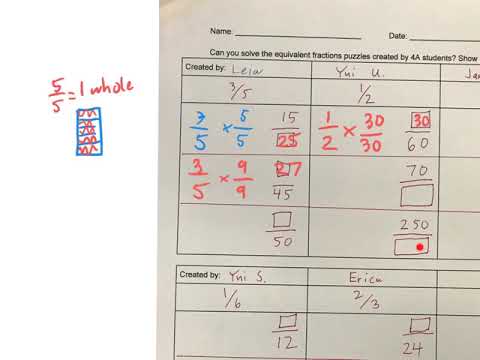 Name: Date:
Can you solve the equivalent fractions puzzles created by 4A students? Show
Created by: Leia Yui U. Ja
3/5 1/2
5/5 = 1 whole
3/5 × 5/5 15/25 1/2 × 30/30 30/60
3/5 × 9/9 27/45 70/□
□/50 250/□
Created by: Yui S. Erica
1/6 2/3
□/12 □/24